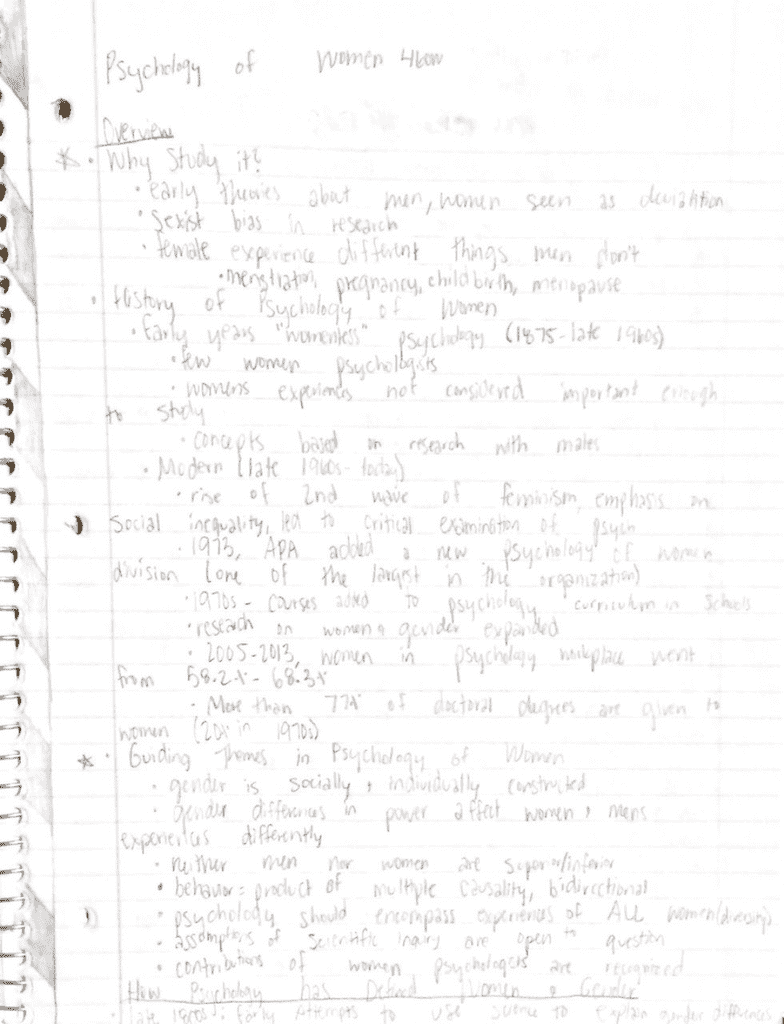 Psychology of Women 460W
Overview
* • Why Study it?
• early theories about men, women seen as deviation
• Sexist bias in research
• female experience different things men don't
• menstration, pregnancy, childbirth, menopause
• History of Psychology of Women
• Early years "womenless" psychology (1875-late 1960s)
• few women psychologists
• womens experiences not considered important enough
to study
• concepts based on research with males
• Modern (late 1960s-today)
• rise of 2nd wave of feminism, emphasis on
Social inequality, led to critical examination of psych
• 1973, APA added a new psychology of women
division (one of the largest in the organization)
• 1970s - courses added to psychology curriculum in schools
• research on women & gender expanded
• 2005-2013, women in psychology workplace went
from 58.2% - 68.3%
• More than 77% of doctoral degrees are given to
women (20% in 1970s)
* • Guiding Themes in Psychology of Women
• gender is socially & individually constructed
• gender differences in power affect women & mens
experiences differently
• neither men nor women are superior/inferior
• behavior = product of multiple causality, bidirectional
• psychology should encompass experiences of ALL women (diversity)
• assumptions of scientific inquiry are open to question
• contributions of women psychologers are recognized
How Psychology has Defined Women & Gender
• late 1800s: Early Attempts to use science to explain gender differences